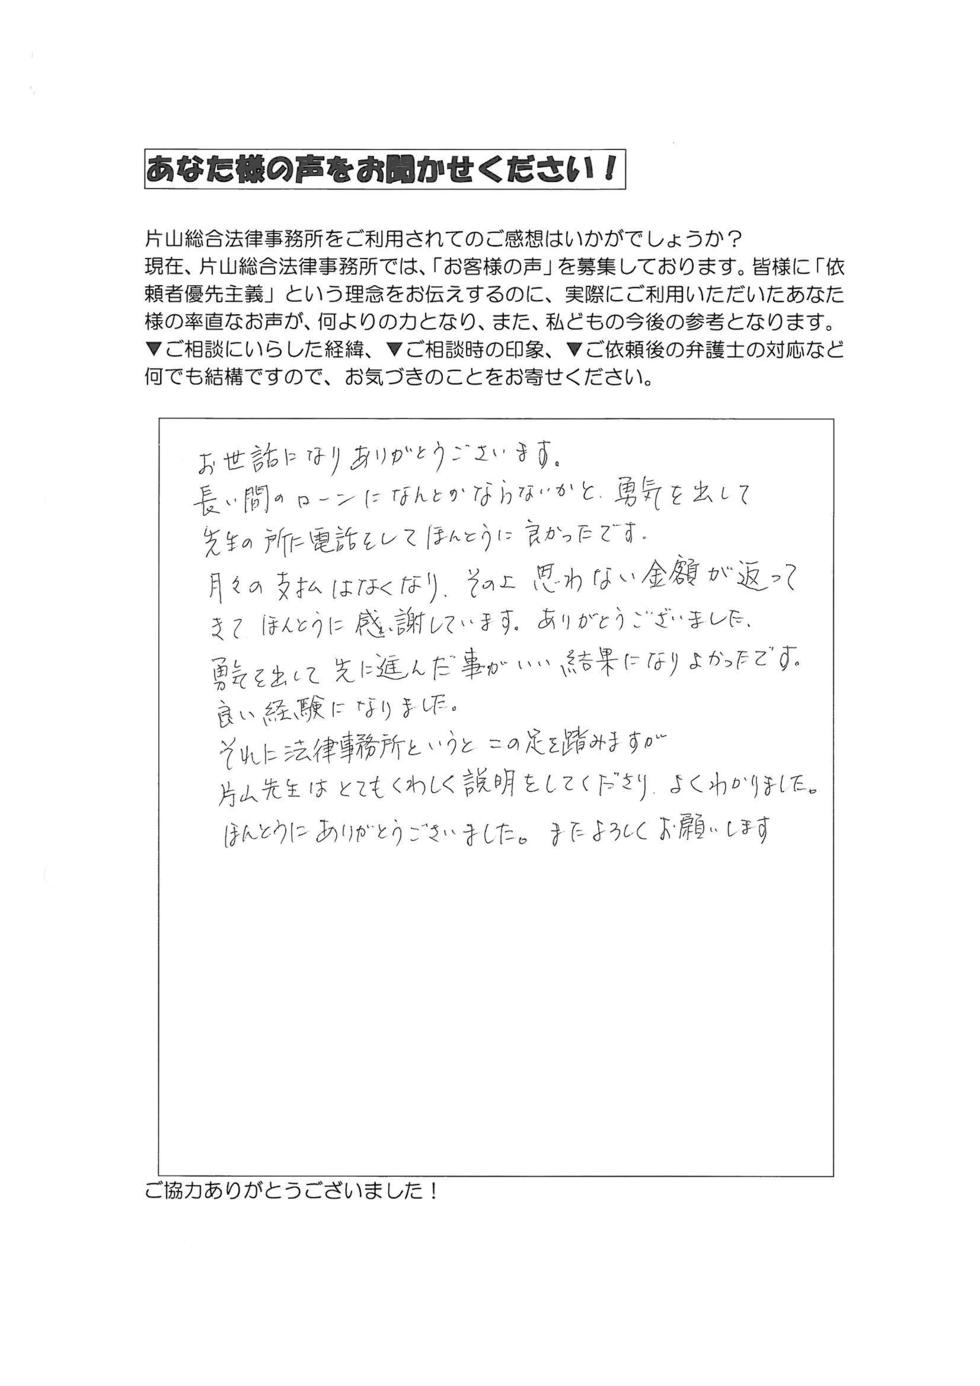 あなた様の声をお聞かせください！
片山総合法律事務所をご利用されてのご感想はいかがでしょうか？
現在、片山総合法律事務所では、「お客様の声」を募集しております。皆様に「依
頼者優先主義」という理念をお伝えするのに、実際にご利用いただいたあなた
様の率直なお声が、何よりの力となり、また、私どもの今後の参考となります。
▼ご相談にいらした経緯、▼ご相談時の印象、▼ご依頼後の弁護士の対応など
何でも結構ですので、お気づきのことをお寄せください。
お世話になりありがとうございます。
長い間のローンになんとかならないかと、勇気を出して
先生の所に電話をしてほんとうに良かったです。
月々の支払はなくなり、その上 思わない金額が返って
きて ほんとうに感謝しています。ありがとうございました、
勇気を出して 先に進んだ事がいい結果になりよかったです。
良い経験になりました。
それに法律事務所というと この足を踏みますが
片山先生はとてもくわしく説明をしてくださり、よくわかりました。
ほんとうにありがとうございました。またよろしくお願いします
ご協力ありがとうございました！